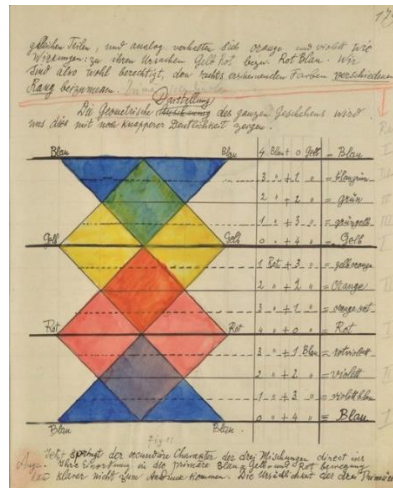 17
gleichen Teilen, und analog verhalten sich orange und violett wie
Wirkungen: zu ihren Ursachen Gelb Rot bezw. Rot Blau. Wir
sind also wohl berechtigt, den rechts erscheinenden Farben verschiedenen
Rang beizumessen.
Darstellung
Die Geometrische des ganzen Geschehens wird
uns dies mit noch knapperer Deutlichkeit zeigen.
Blau Blau 4 Blau + 0 Gelb = Blau
3 " + 1 " = blaugrün
2 " + 2 " = grün
1 " + 3 " = grüngelb
Gelb Gelb 0 " + 4 " = Gelb
1 Rot + 3 " = gelborange
2 " + 2 " = Orange
3 " + 1 " = orangerot
Rot Rot 4 " + 0 " = Rot
3 " + 1 Blau = rotviolett
2 " + 2 " = violett
1 " + 3 " = violettblau
Blau Blau 0 " + 4 " = Blau
Fig 11
Jetzt springt der secundäre Charakter der drei Mischungen direct ins
Auge. Ihre Einordnung in die primäre Blau = Gelb und Rot bewegung
kann klarer nicht zum Ausdruck kommen. Die der drei Primären